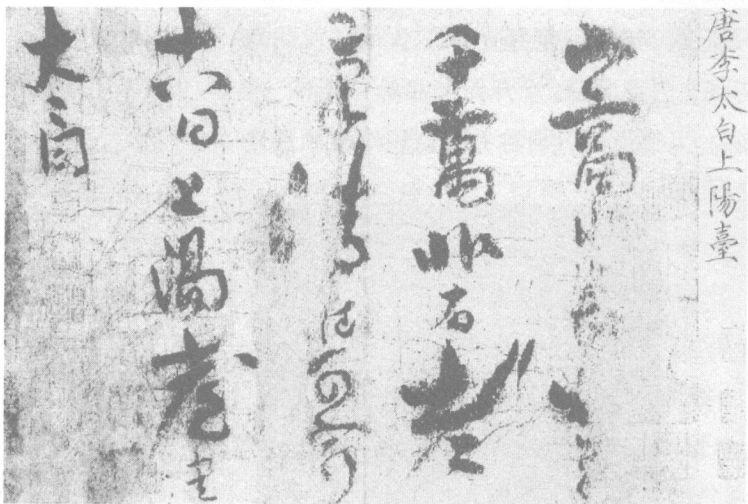 唐李太白上陽臺
山高水長物象
千萬非有老
筆清壯何窮
十八日上陽臺書
太白